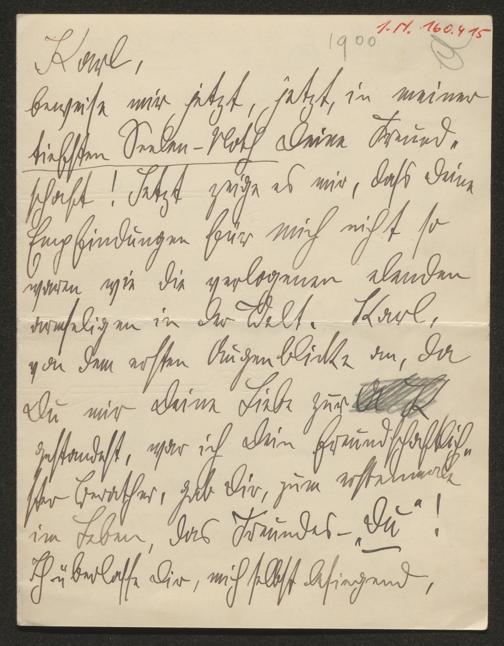 I.N. 160.415
1900
Karl,
beweise mir jetzt, jetzt, in meiner
tiefsten Seelen-Noth Deine Freund-
schaft! Jetzt zeige es mir, dass Deine
Empfindungen für mich nicht so
waren wie die verlogenen elenden
armseligen in der Welt. Karl,
von dem ersten Augenblicke an, da
Du mir Deine Liebe zur
gestandest, war ich Dein freundschaftlich-
ster Berather, gab Dir, zum erstenmale
im Leben, das Freundes-„Du"!
Ich überlasse Dir, mich selbst besiegend,